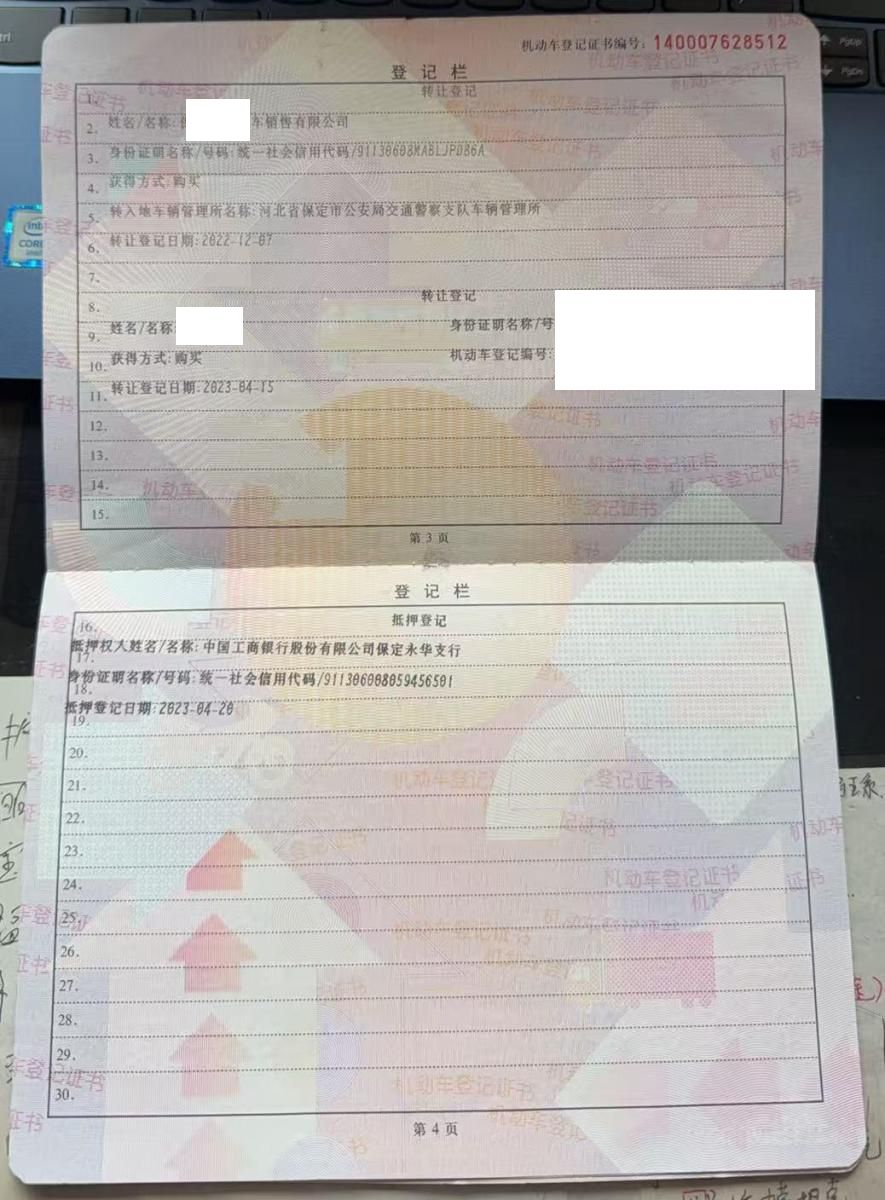 机动车登记证书编号: 140007628512
登记栏
1. 转让登记
2. 姓名/名称: 车销售有限公司
3. 身份证明名称/号码:统一社会信用代码/91130608MABLJPD86A
4. 获得方式:购买
5. 转入地车辆管理所名称:河北省保定市公安局交通警察支队车辆管理所
6. 转让登记日期:2022-12-07
7.
8. 转让登记
9. 姓名/名称: 身份证明名称/号
10. 获得方式:购买 机动车登记编号:
11. 转让登记日期:2023-04-15
12.
13.
14.
15.
第 3 页
登记栏
16. 抵押登记
17. 抵押权人姓名/名称: 中国工商银行股份有限公司保定永华支行
18. 身份证明名称/号码:统一社会信用代码/911306008059456501
19. 抵押登记日期:2023-04-20
20.
21.
22.
23.
24.
25.
26.
27.
28.
29.
30.
第 4 页